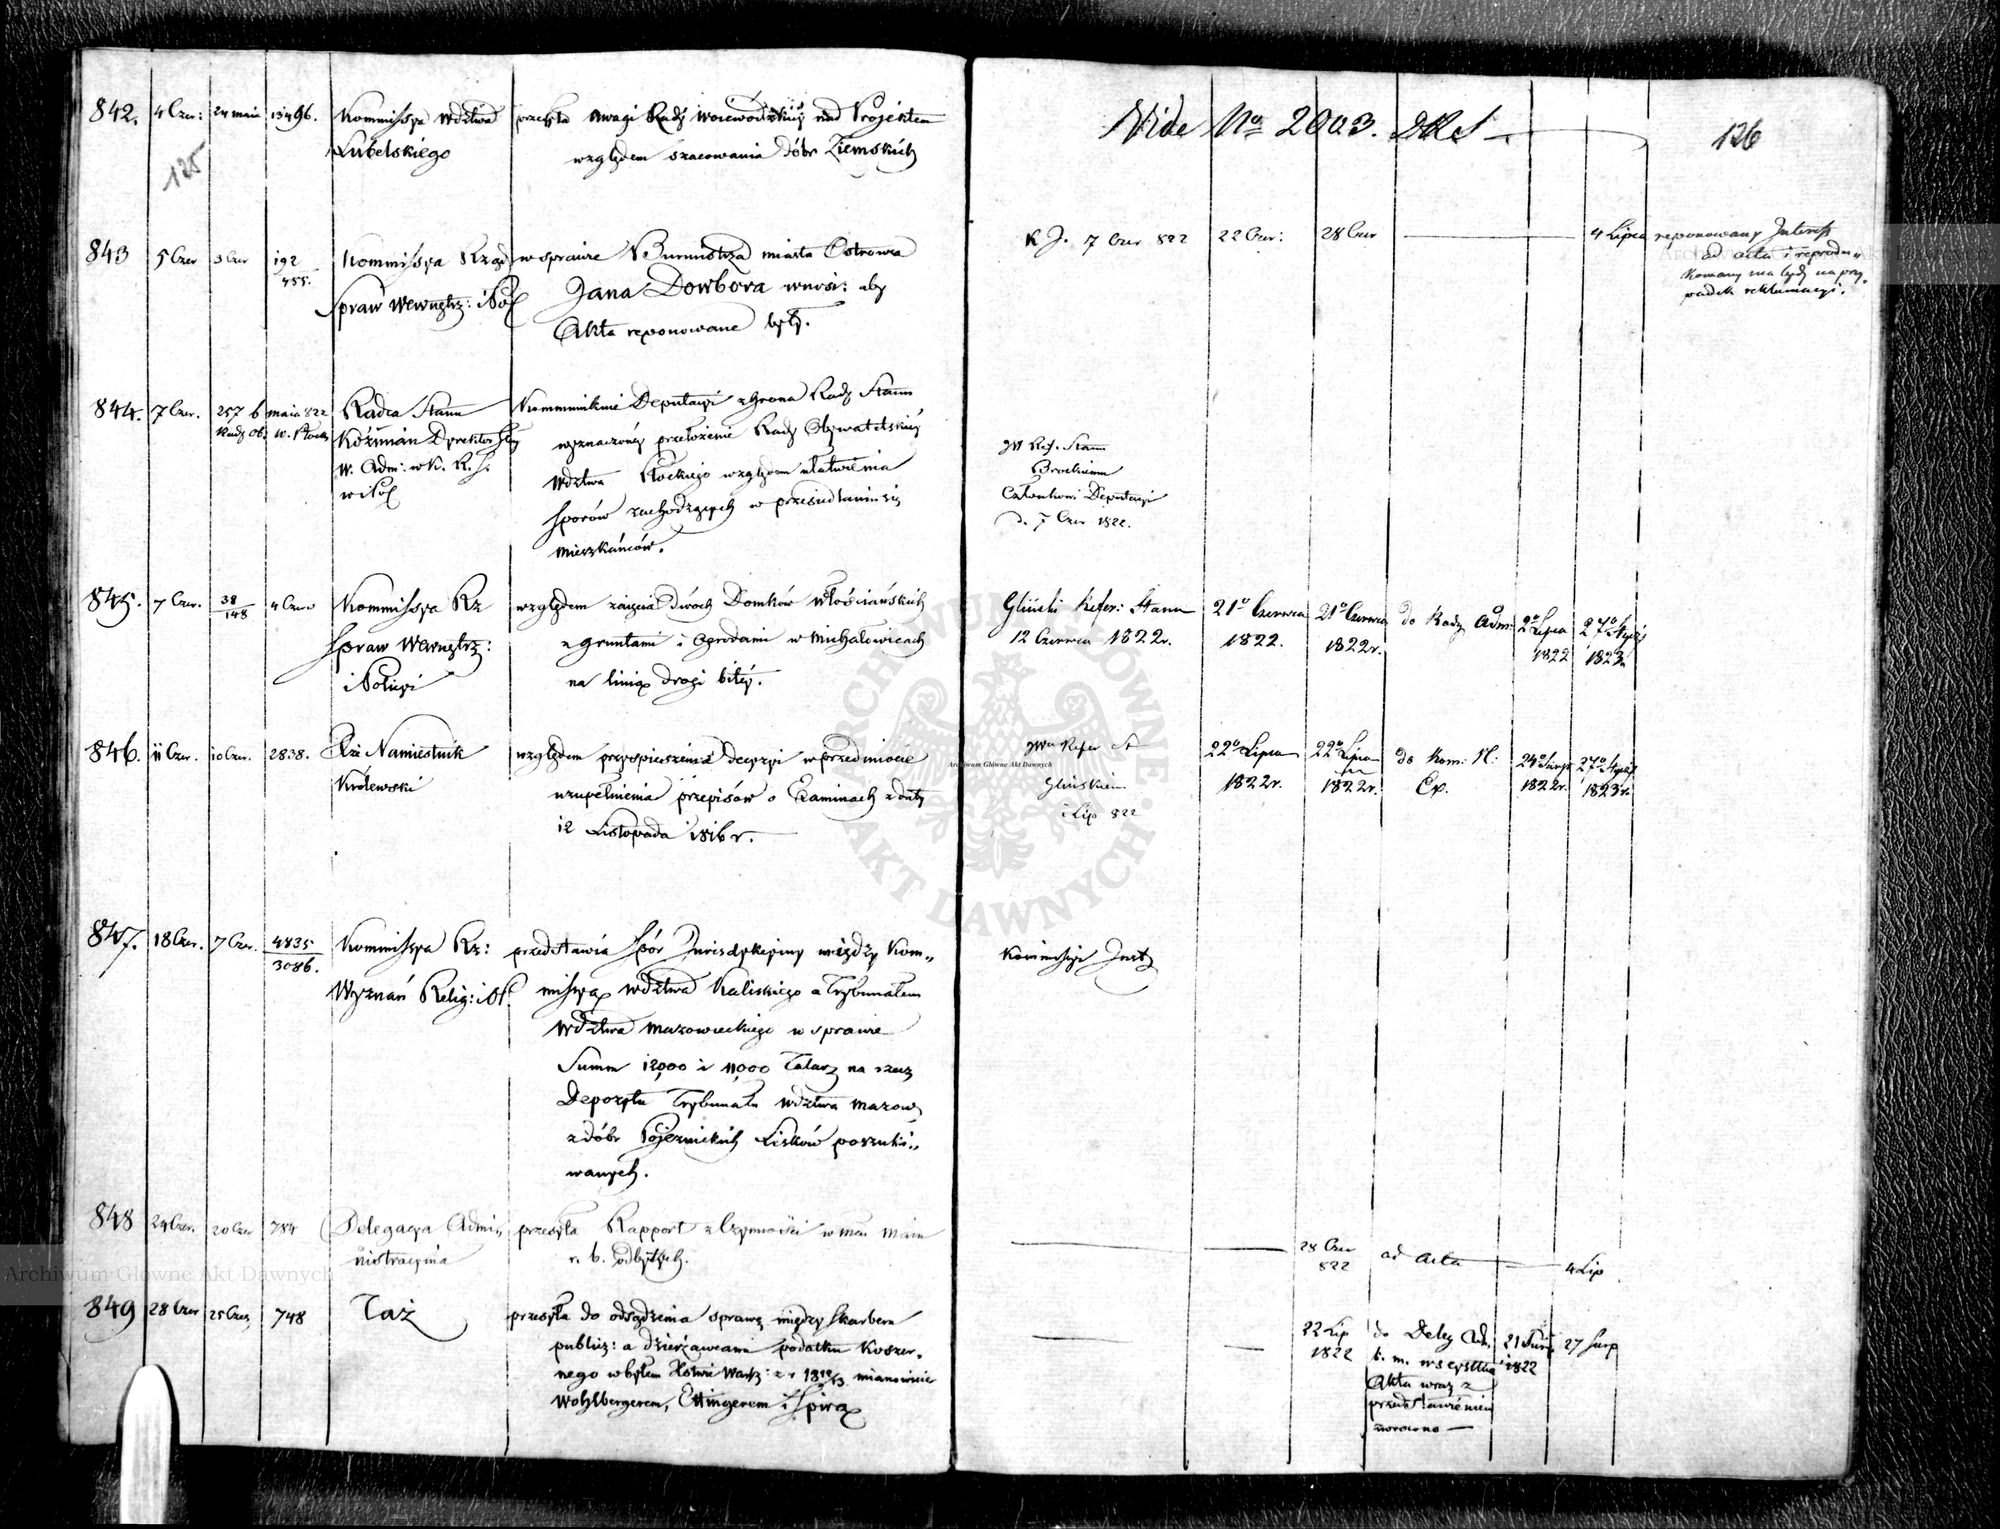 842. 4 Czer: 24 maia 13496. Kommissya Wdztwa przesyła uwagi Rady Woiewódzkiej nad Projektem
Lubelskiego względem szacowania dóbr Ziemskich
125
843 5 Czer 3 Czer 192 Kommissya Rząd w sprawie Burmistrza miasta Ostrowa
455. Spraw Wewnętrz: i Pol Jana Dowbora wnosi: aby
Akta reponowane były.
844. 7 Czer. 257 6 maia 822 Radca Stanu Kommunikuie Deputacyi z grona Rady Stanu
Rady Ob. w. Płock Koźmian Dyrektor Jlny wyznaczonéy przełożenie Rady Obywatelskiéy
W. Adm: w K. R. S. Wdztwa Płockiego względem ułatwienia
w i Pol sporów zachodzących w przesiedlaniu się
mieszkańców.
845. 7 Czer. 38 4 Czerw Kommissya Rz względem zaięcia dwóch Domków włościańskich
148 Spraw Wewnętrz: z gruntami i Ogrodami w Michałowicach
i Policyi na linią drogi bitéy.
846. 11 Czer. 10 Czer. 2838. Xże Namiestnik względem przyspieszenia decyzyi w przedmiocie
Królewski uzupełnienia przepisów o Examinach z daty
12 Listopada 1816 r.
847. 18 Czer. 7 Czer. 4835 Kommissya Rz: przedstawia spór Jurisdykcyiny między Kom„
3086. Wyznań Relig: i Oś. missyą Wdztwa Kaliskiego a Trybunałem
Wdztwa Mazowieckiego w sprawie
Summ 12,000 i 11,000 Talary na rzecz
Depozytu Trybunału Wdztwa Mazow
z dóbr Lisków poszuki„
wanych.
848 24 Czer. 20 Czer 784 Delegacya Admi„ przesyła Rapport z Czynności w mcu Maiu
nistracyina r. b. odbytych.
849 28 Czer 25 Czer 748 Taż przesyła do osądzenia sprawę między Skarbem
publicz: a dzierżawcami podatku Koszer„
nego w byłem Xstwie Warsz: z r 1812/13. mianowicie
Wohlbergerem, Ettingerem i Spirą
Vide No 2003. DRS
126
K J. 7 Czer 822 22 Czer: 28 Czer 4 Lipca reponowany Interess
ad acta i reprodu„
kowany ma być na przy„
padek reklamacyi.
JW Ref. Stanu
Brockiemu
Członkowi Deputacyi
d. 7 Czer 1822.
Gliński Refer: Stanu 21o Czerwca 21o Czerwca do Rady Adm: 2o Lipca 27o Stycz
12 Czerwca 1822r. 1822. 1822r. 1822 1823
JWu Refer St 22o Lipca 22o Lipca do Kom: N: 24o Sierp 27o Stycz
Glińskiemu 1822r. 1822r. Ex. 1822r. 1823r.
1 Lip 822
Archiwum Główne Akt Dawnych
ARCHIWUM GŁÓWNE
AKT DAWNYCH
Kommissyi Inst
28 Czer ad acta 4 Lip
822
22 Lip do Deleg Adm 21 Sier 27 Sierp
1822 t. m. wszystkie 1822
Akta wraz z
przedstawieniem
zwrócono
Archiwum Główne Akt Dawnych